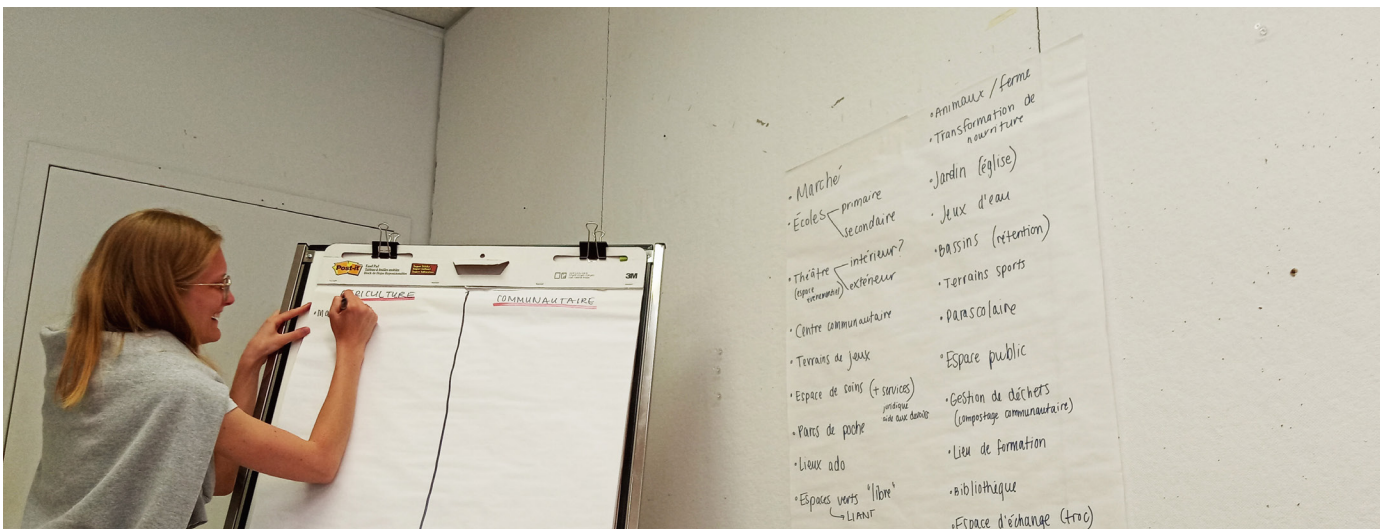 Post-it
3M
COMMUNAUTAIRE
• Marché
• Écoles
primaire
secondaire
• Théâtre
(espace
évènementiel)
intérieur?
extérieur
• Centre communautaire
• Terrains de jeux
• Espace de soins (+ services)
juridique
aide aux devoirs
• Parcs de poche
• Lieux ado
• Espaces verts "libre"
LIANT
• Animaux / ferme
• Transformation de
nourriture
• Jardin (église)
• Jeux d'eau
• Bassins (rétention)
• Terrains sports
• Parascolaire
• Espace public
• Gestion de déchets
(compostage communautaire)
• Lieu de formation
• Bibliothèque
• Espace d'échange (troc)